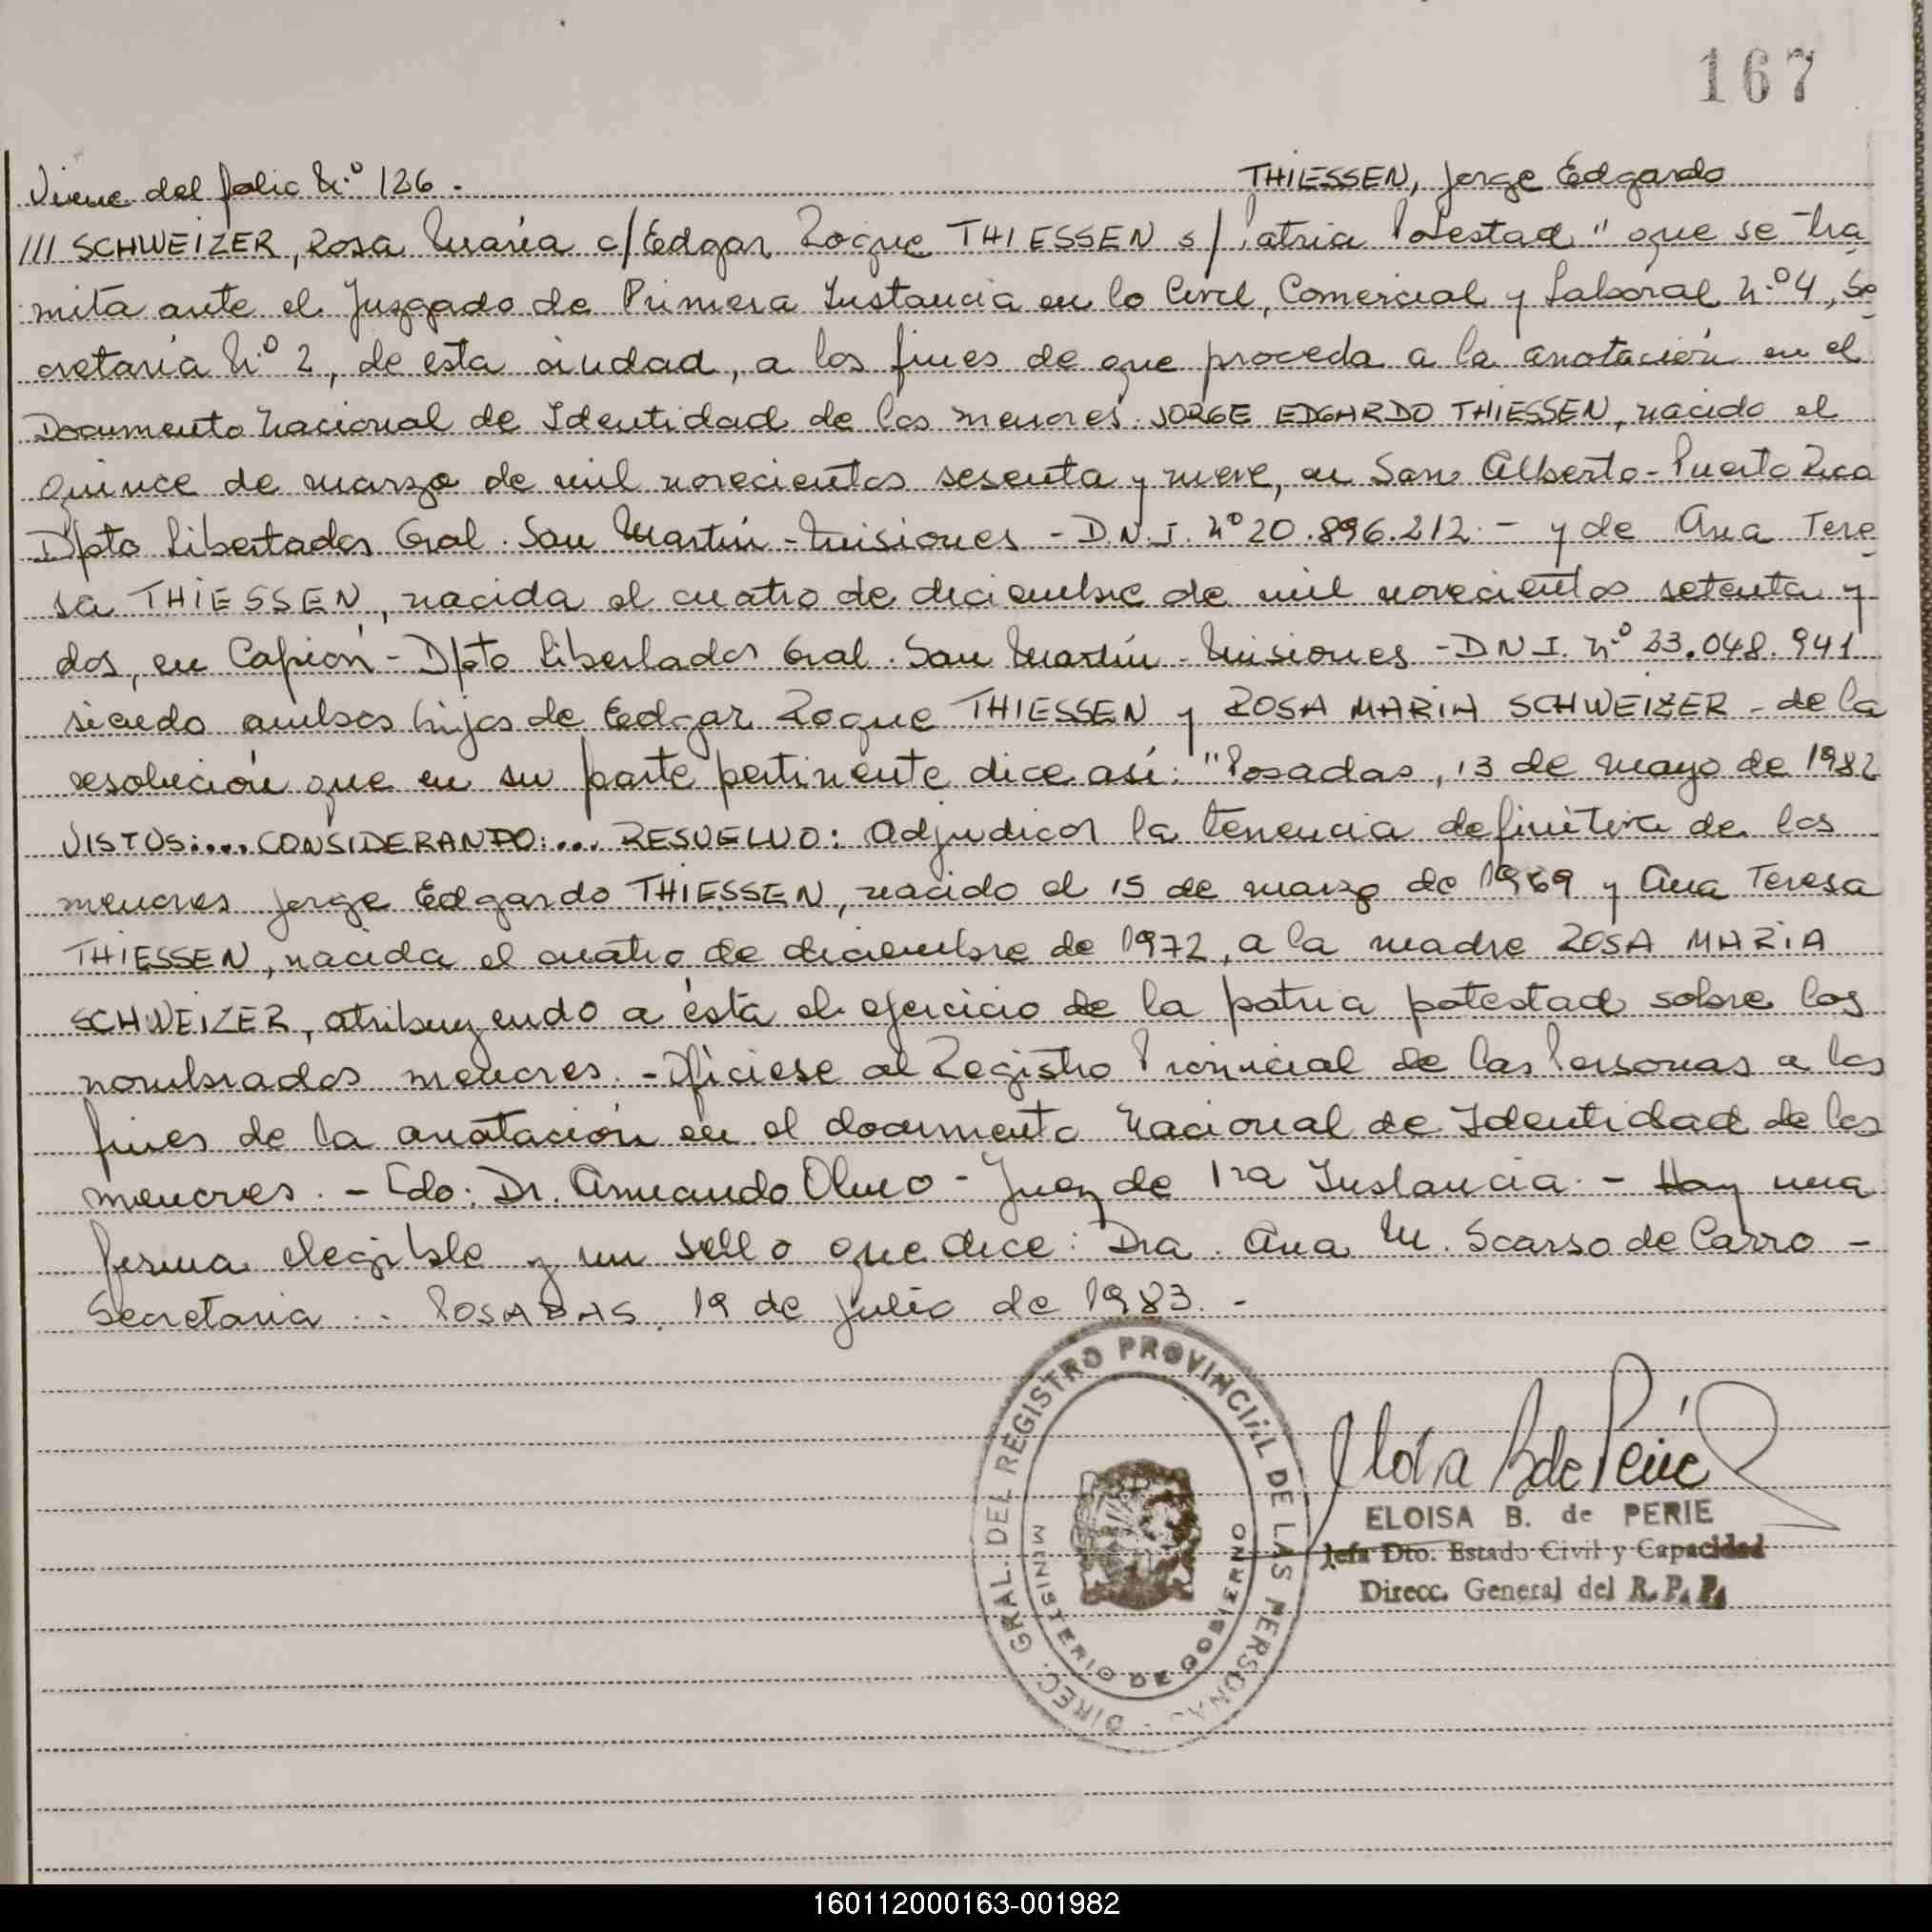 167
Viene del folio N.º 126.-
THIESSEN, Jorge Edgardo
/// SCHWEIZER, Rosa María c/ Edgar Roque THIESSEN s/ Patria Potestad" que se tra
mita ante el Juzgado de Primera Instancia en lo Civil, Comercial y Laboral N.º 4, Se
cretaría N.º 2, de esta ciudad, a los fines de que proceda a la anotación en el
Documento Nacional de Identidad de los menores: JORGE EDGARDO THIESSEN, nacido el
quince de marzo de mil novecientos sesenta y nueve, en San Alberto - Puerto Rico
Dpto Libertador Gral. San Martín - Misiones - D.N.I. Nº 20.896.212.- y de Ana Tere
sa THIESSEN, nacida el cuatro de diciembre de mil novecientos setenta y
dos, en Capioví - Dpto Libertador Gral. San Martín - Misiones - D N I. Nº 23.048.941
siendo ambos hijos de Edgar Roque THIESSEN y ROSA MARIA SCHWEIZER - de la
resolución que en su parte pertinente dice así: "Posadas, 13 de mayo de 1982
VISTOS:... CONSIDERANDO:... RESUELVO: Adjudicar la tenencia definitiva de los
menores Jorge Edgardo THIESSEN, nacido el 15 de marzo de 1969 y Ana Teresa
THIESSEN, nacida el cuatro de diciembre de 1972, a la madre ROSA MARIA
SCHWEIZER, atribuyendo a ésta el ejercicio de la patria potestad sobre los
nombrados menores. - Ofíciese al Registro Provincial de las Personas a los
fines de la anotación en el documento Nacional de Identidad de los
menores. - Fdo: Dr. Armando Olmo - Juez de 1ra Instancia. - Hay una
firma elegible y un sello que dice: Dra. Ana M. Scarso de Carro -
Secretaria. - POSADAS, 19 de julio de 1983. -
DIREC. GRAL. DEL REGISTRO PROVINCIAL DE LAS PERSONAS
MINISTERIO DE GOBIERNO
Eloisa B de Perié
ELOISA B. de PERIE
Jefa Dto. Estado Civil y Capacidad
Direcc. General del R. P. P.
160112000163-001982